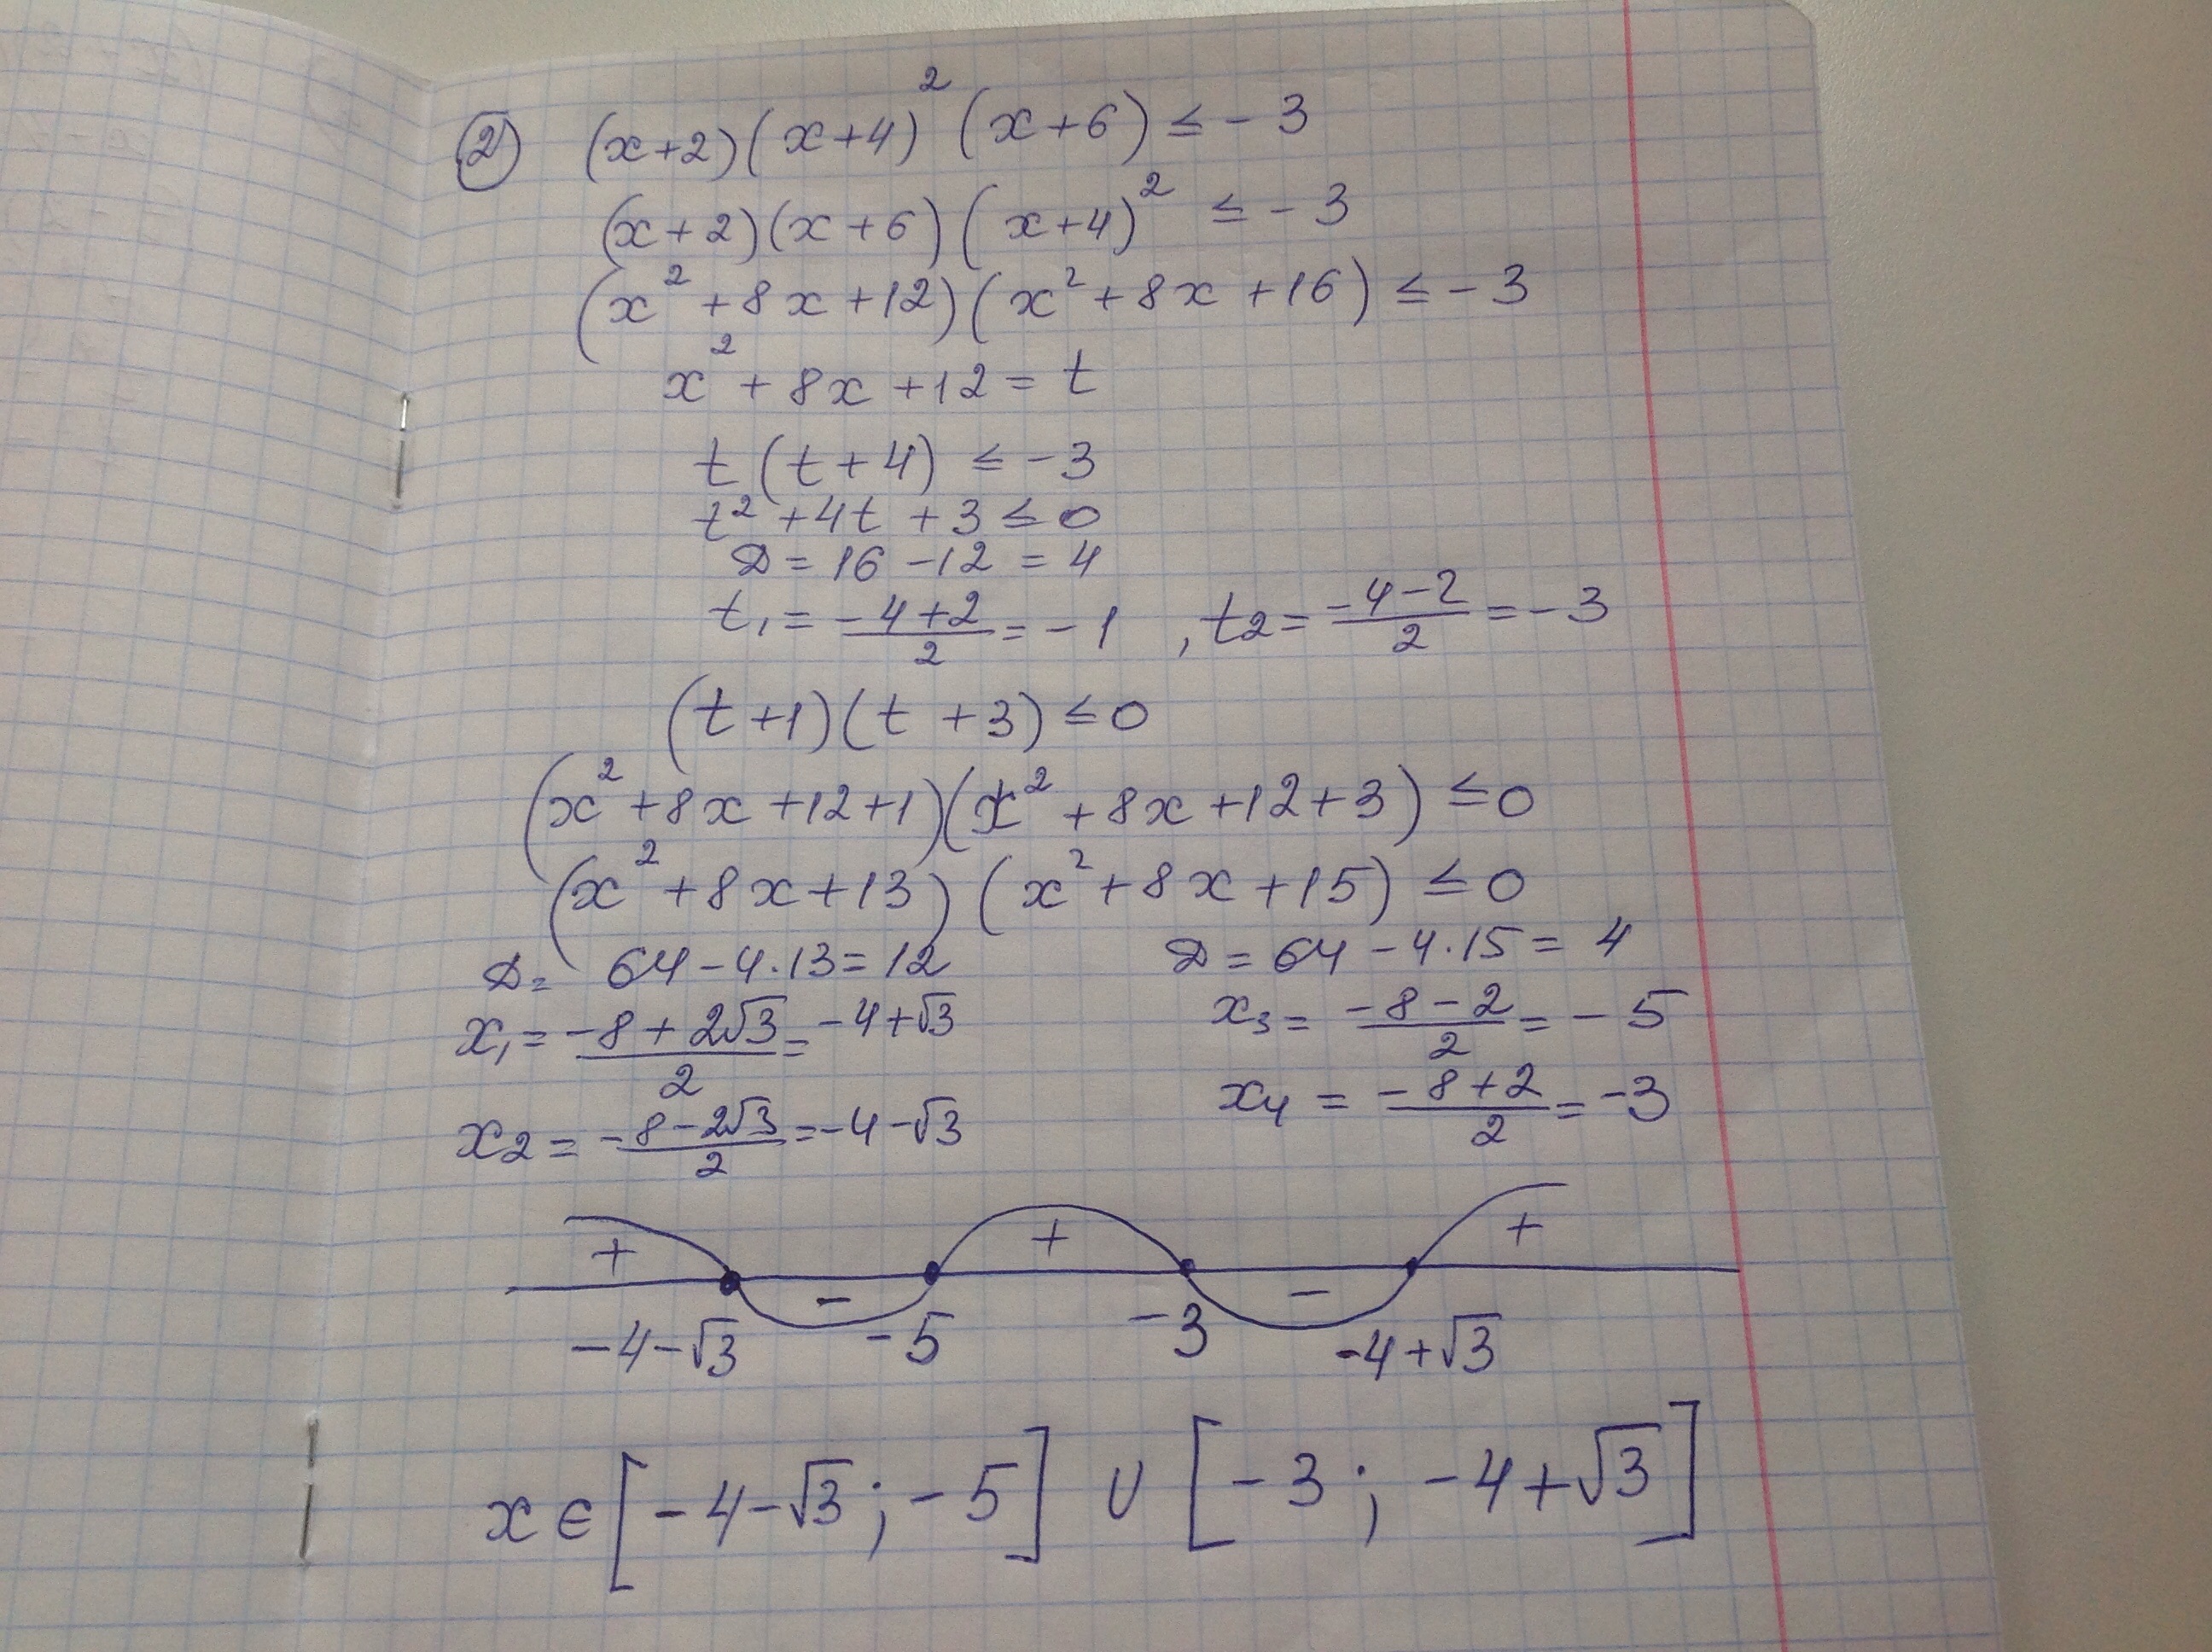 ② (x+2)(x+4)² (x+6) ≤ -3
(x+2)(x+6)(x+4)² ≤ -3
(x²+8x+12)(x²+8x+16) ≤ -3
x²+8x+12 = t
t(t+4) ≤ -3
t²+4t+3 ≤ 0
D = 16-12 = 4
t₁ = (-4+2)/2 = -1 , t₂ = (-4-2)/2 = -3
(t+1)(t+3) ≤ 0
(x²+8x+12+1)(x²+8x+12+3) ≤ 0
(x²+8x+13)(x²+8x+15) ≤ 0
D = 64-4·13 = 12 D = 64-4·15 = 4
x₁ = (-8+2√3)/2 = -4+√3 x₃ = (-8-2)/2 = -5
x₂ = (-8-2√3)/2 = -4-√3 x₄ = (-8+2)/2 = -3
+ - + - +
-4-√3 -5 -3 -4+√3
x ∈ [-4-√3; -5] ∪ [-3; -4+√3]